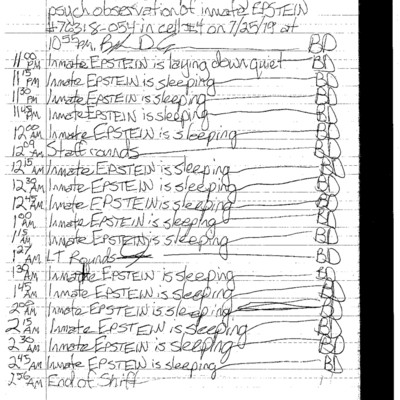 psych observation of inmate EPSTEIN
#76318-054 in cell #4 on 7/25/19 at
10:55PM. BD
11:00 PM Inmate EPSTEIN is laying down quiet BD
11:15 PM Inmate EPSTEIN is sleeping BD
11:30 PM Inmate EPSTEIN is sleeping BD
11:45 PM Inmate EPSTEIN is sleeping BD
12:00 AM Inmate EPSTEIN is sleeping BD
12:09 AM Staff rounds BD
12:15 AM Inmate EPSTEIN is sleeping BD
12:30 AM Inmate EPSTEIN is sleeping BD
12:45 AM Inmate EPSTEIN is sleeping BD
1:00 AM Inmate EPSTEIN is sleeping BD
1:15 AM Inmate EPSTEIN is sleeping BD
1:27 AM LT Rounds BD
1:30 AM Inmate EPSTEIN is sleeping BD
1:45 AM Inmate EPSTEIN is sleeping BD
2:00 AM Inmate EPSTEIN is sleeping BD
2:15 AM Inmate EPSTEIN is sleeping BD
2:30 AM Inmate EPSTEIN is sleeping BD
2:45 AM Inmate EPSTEIN is sleeping BD
2:56 AM End of Shift